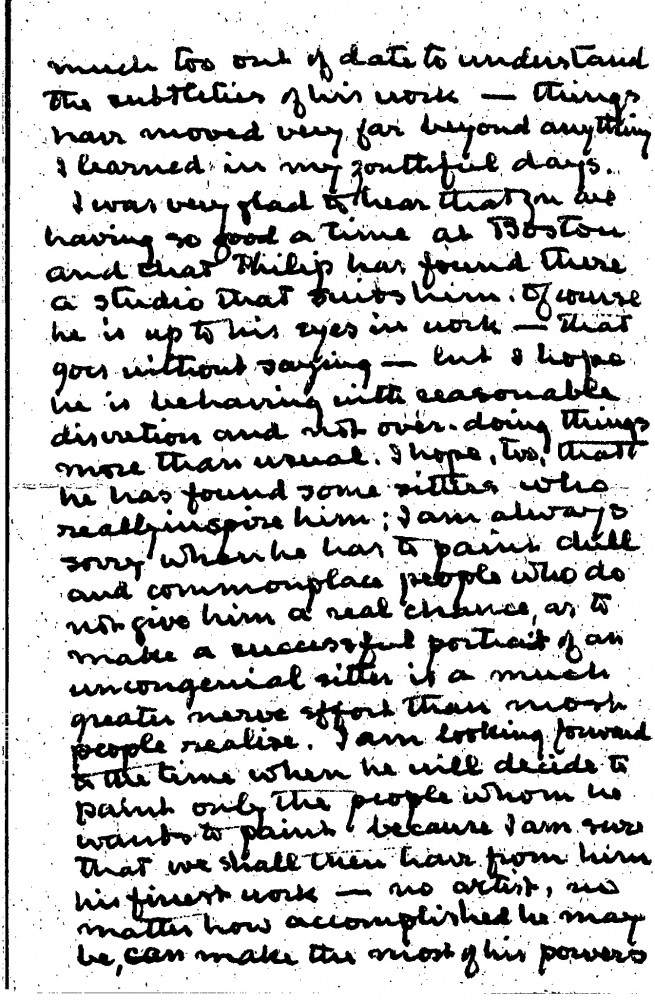 much too out of date to understand
the subtleties of his work — things
have moved very far beyond anything
I learned in my youthful days.
I was very glad to hear that you are
having so good a time at Boston
and that Philip has found there
a studio that suits him. Of course
he is up to his eyes in work — that
goes without saying — but I hope
he is behaving with reasonable
discretion and not over-doing things
more than usual. I hope, too, that
he has found some sitters who
really inspire him; I am always
sorry when he has to paint dull
and commonplace people who do
not give him a real chance, as to
make a successful portrait of an
uncongenial sitter is a much
greater nerve effort than most
people realise. I am looking forward
to the time when he will decide to
paint only the people whom he
wants to paint because I am sure
that we shall then have from him
his finest work — no artist, no
matter how accomplished he may
be, can make the most of his powers